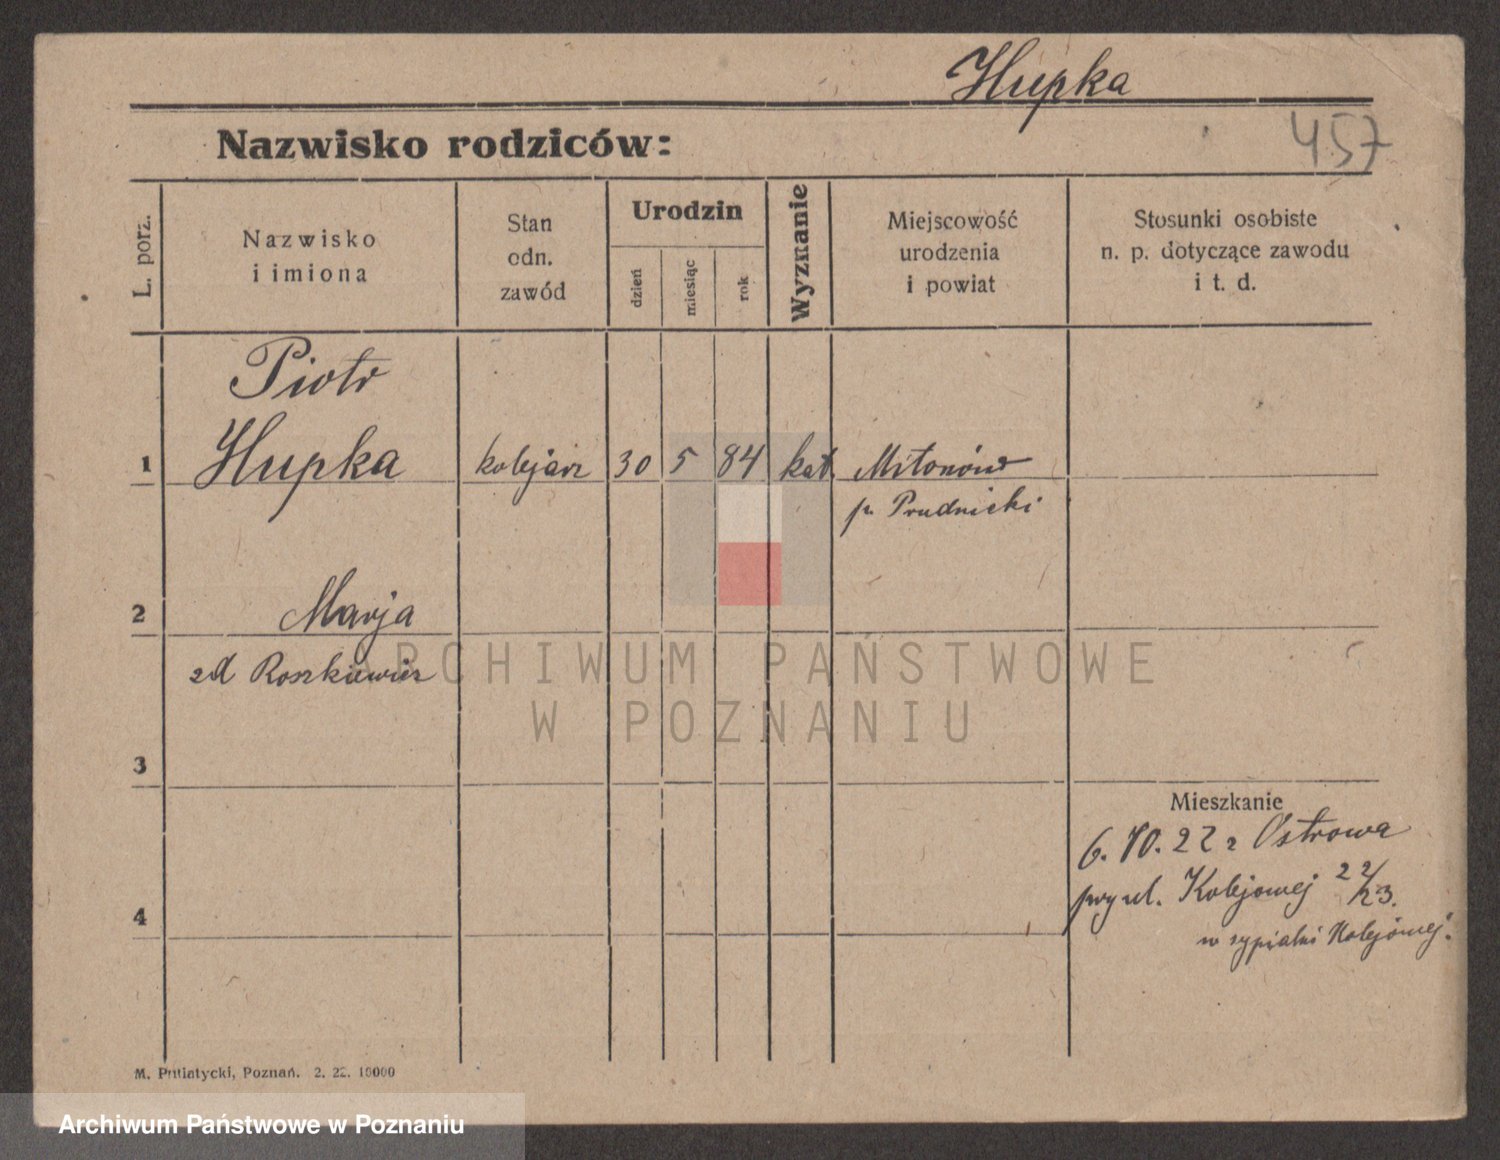 Hupka
457
Nazwisko rodziców:
L. porz.
Nazwisko
i imiona
Stan
odn.
zawód
Urodzin
dzień
miesiąc
rok
Wyznanie
Miejscowość
urodzenia
i powiat
Stosunki osobiste
n. p. dotyczące zawodu
i t. d.
Piotr
1 Hupka kolejarz 30 5 84 kat Mitonów
p. Prudnicki
2 Marja
zd Roszkiewicz
ARCHIWUM PAŃSTWOWE
W POZNANIU
3
Mieszkanie
6. 10. 22 z Ostrowa
przy ul. Kolejowej 22/23.
4
w sypialni Kolejowej.
M. Putiatycki, Poznań. 2. 22. 10000
Archiwum Państwowe w Poznaniu